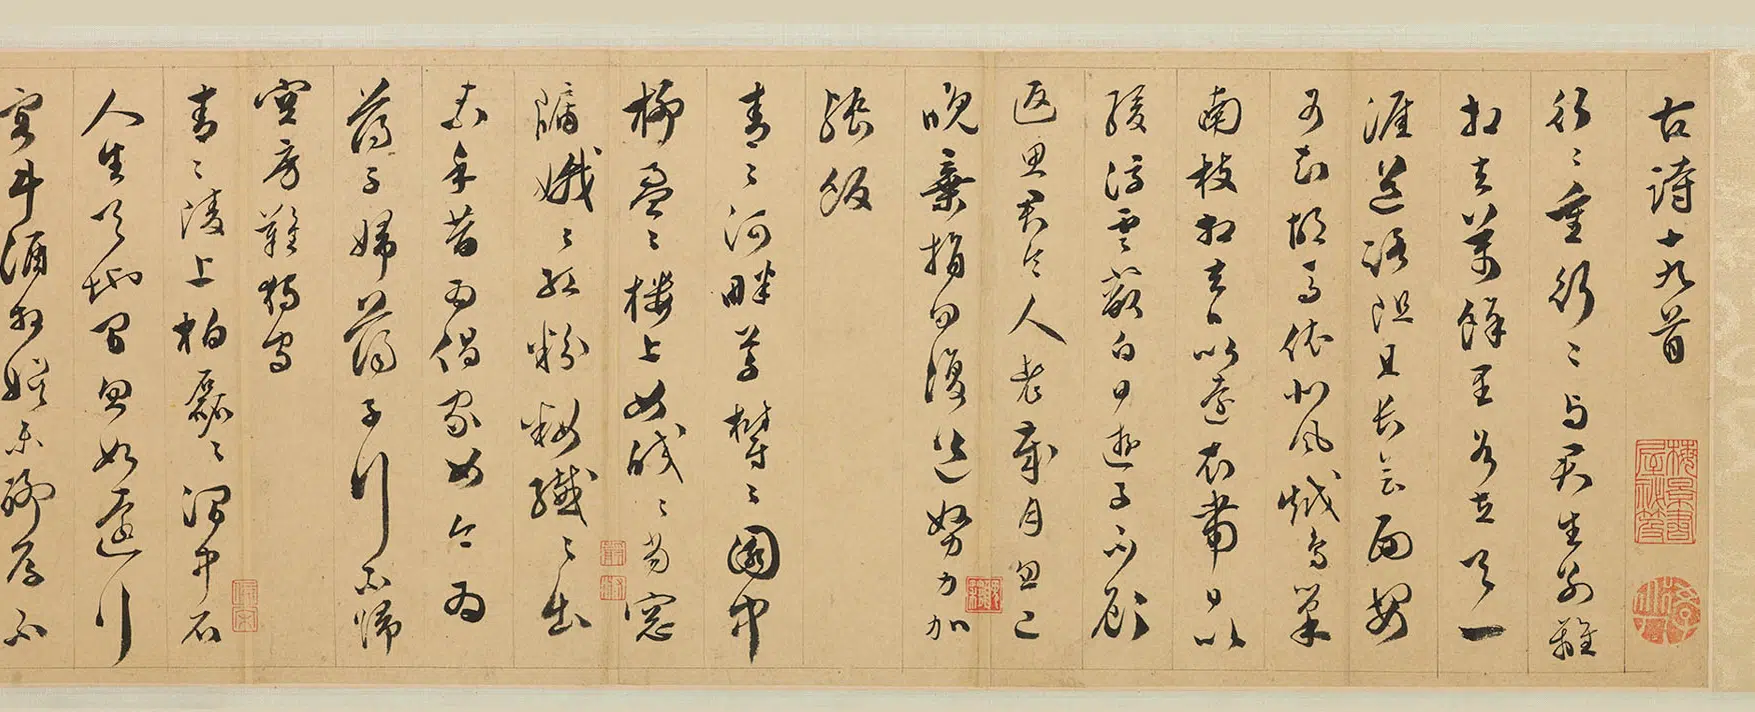 古詩十九首
行〻重行〻與君生別離
相去萬餘里各在天一
涯道路阻且長會面安
可知胡馬依北風越鳥巢
南枝相去日以遠衣帶日以
緩浮雲蔽白日遊子不顧
返思君令人老歲月忽已
晚棄捐勿復道努力加
餐飯
青〻河畔草鬱〻園中
柳盈〻樓上女皎〻當窗
牖娥〻紅粉粧纖〻出
素手昔為倡家女今為
蕩子婦蕩子行不歸
空房難獨守
青〻陵上柏磊〻澗中石
人生天地間忽如遠行
客斗酒相娛樂聊厚不
梅景書屋祕笈